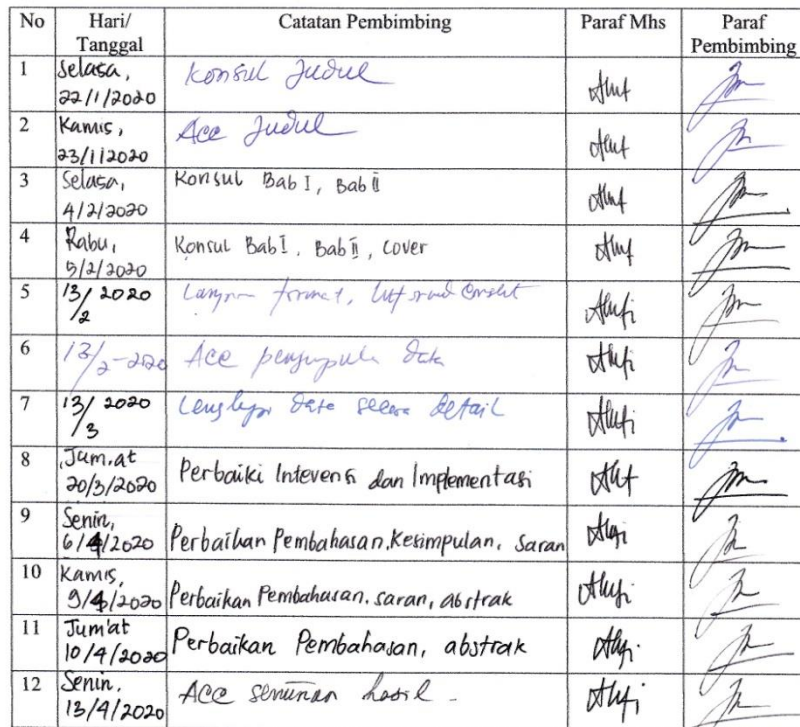 No Hari/ Tanggal Catatan Pembimbing Paraf Mhs Paraf Pembimbing
1 Selasa, 22/1/2020 Konsul Judul
2 Kamis, 23/1/2020 Acc Judul
3 Selasa, 4/2/2020 Konsul Bab I, Bab II
4 Rabu, 5/2/2020 Konsul Bab I, Bab II, cover
5 13/2 2020 format,
6 13/2-2020 Acc data
7 13/3 2020 Lengkapi data secara detail
8 Jum,at 20/3/2020 Perbaiki Intevensi dan Implementasi
9 Senin, 6/4/2020 Perbaikan Pembahasan, Kesimpulan, saran
10 Kamis, 9/4/2020 Perbaikan Pembahasan, saran, abstrak
11 Jum'at 10/4/2020 Perbaikan Pembahasan, abstrak
12 Senin, 13/4/2020 Acc hasil -